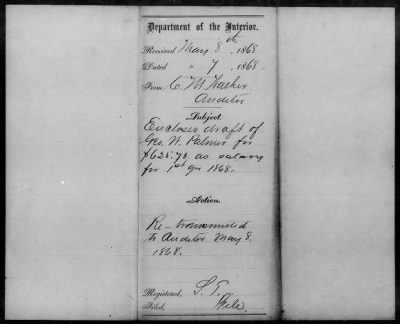 Department of the Interior.
Received May 8th, 1868
Dated " 7, 1868.
From C. M. Walker
Auditor
Subject.
Encloses draft of
Geo. W. Palmer for
as salary
for 1st qr 1868.
Action.
Re-transmitted
to Auditor May 8.
1868.
Registered, S. T.
Filed, File.